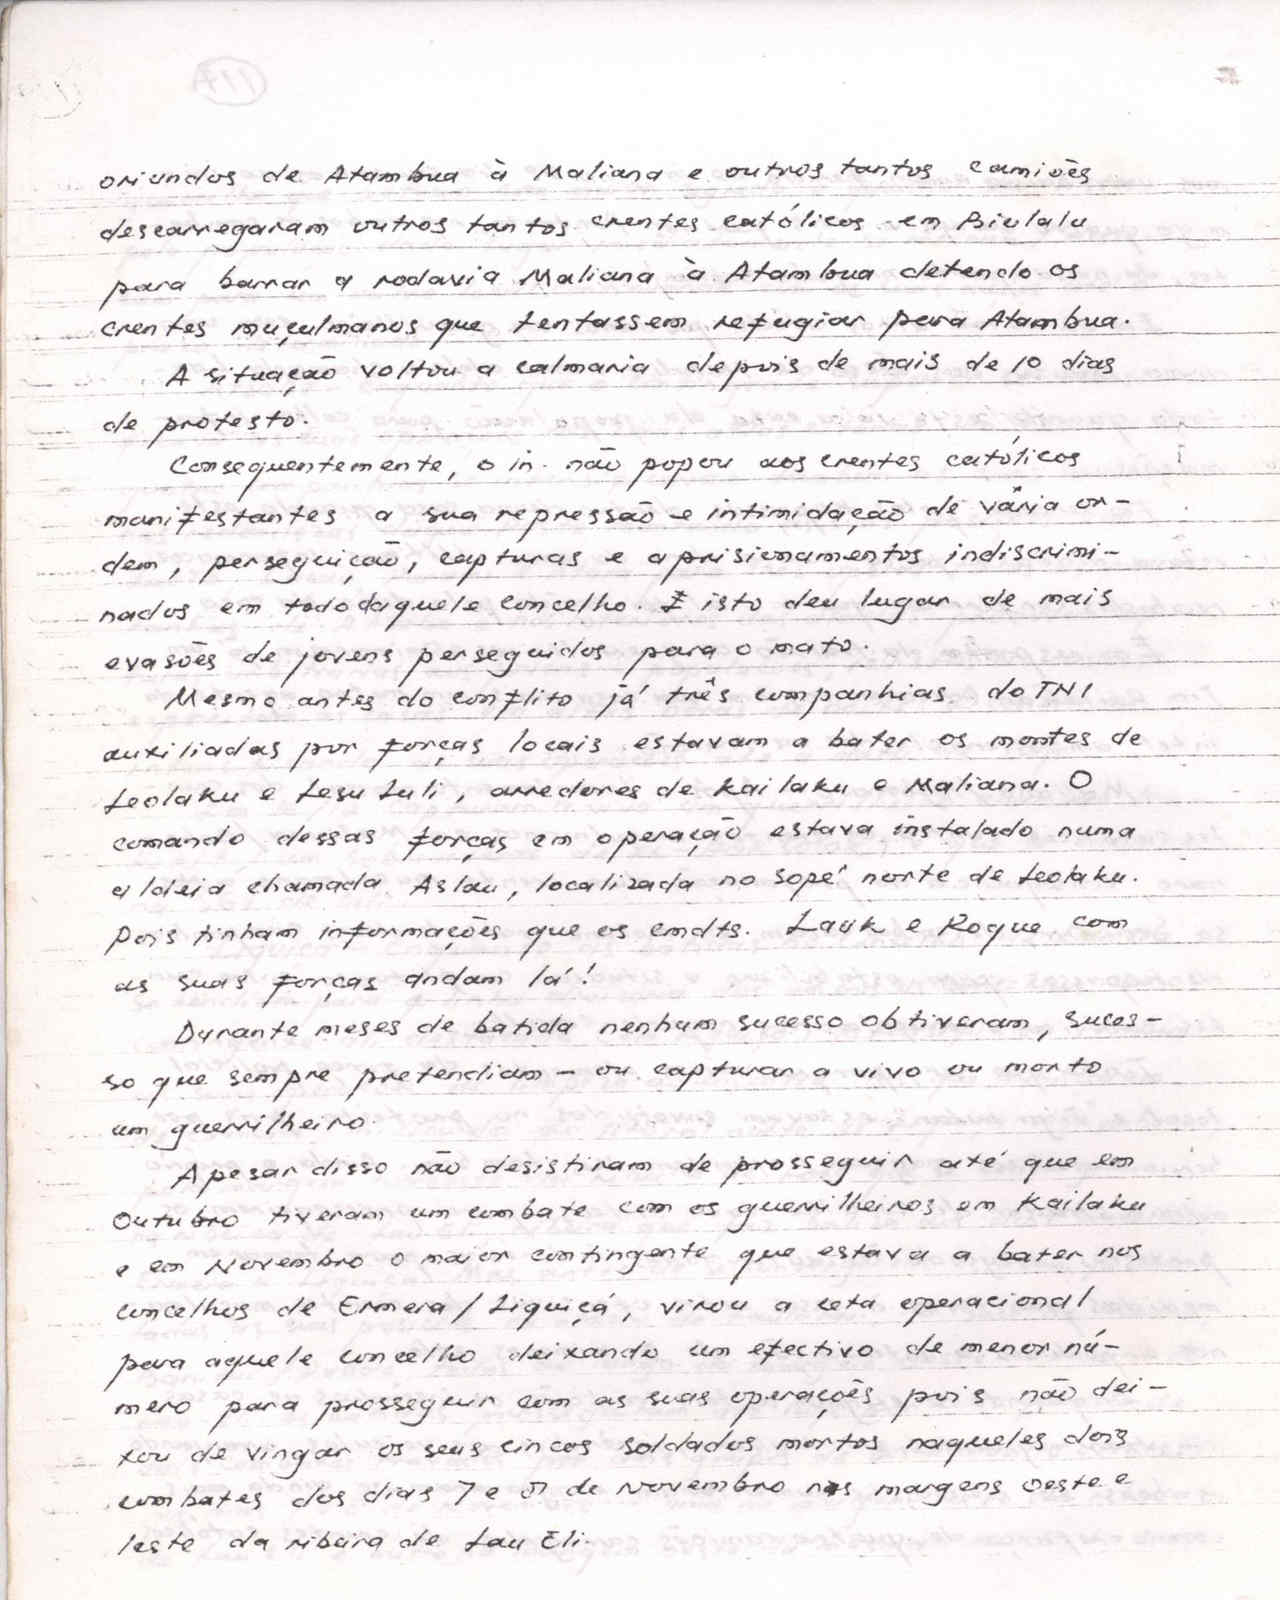 oriundos de Atambua à Maliana e outros tantos camiões
descarregaram outros tantos crentes católicos em Biulalu
para barrar a rodavia Maliana à Atambua detendo os
crentes muçulmanos que tentassem refugiar para Atambua.
A situação voltou a calmaria depois de mais de 10 dias
de protesto.
Consequentemente, o in. não popou aos crentes católicos
manifestantes a sua repressão e intimidação de vária or-
dem, perseguição, capturas e aprisionamentos indiscrimi-
nados em todo daquele concelho. E isto deu lugar de mais
evasões de jovens perseguidos para o mato.
Mesmo antes do conflito já três companhias do TNI
auxiliadas por forças locais estavam a bater os montes de
Leolaku e Lesu Luli, arredores de Kailaku e Maliana. O
comando dessas forças em operação estava instalado numa
aldeia chamada Aslau, localizada no sopé norte de Leolaku.
Pois tinham informações que os cmdts. Lauk e Roque com
as suas forças andam lá!
Durante meses de batida nenhum sucesso obtiveram, suces-
so que sempre pretendiam - ou capturar a vivo ou morto
um guerrilheiro.
Apesar disso não desistiram de prosseguir até que em
Outubro tiveram um combate com os guerrilheiros em Kailaku
e em Novembro o maior contingente que estava a bater nos
concelhos de Ermera/Liquiçá, virou a ceta operacional
para aquele concelho deixando um efectivo de menor nú-
mero para prosseguir com as suas operações pois não dei-
xou de vingar os seus cincos soldados mortos naqueles dois
combates dos dias 7 e de Novembro nas margens oeste e
leste da ribeira de Lau Eli.